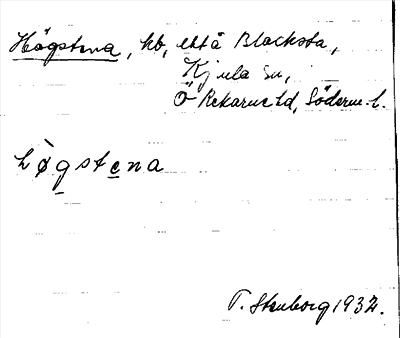 Högstena, hb, ettå Blacksta,
Kjula sn,
Ö Rekarne hd, Söderm. l.
hø̀gstena
T. Stenborg 1932.